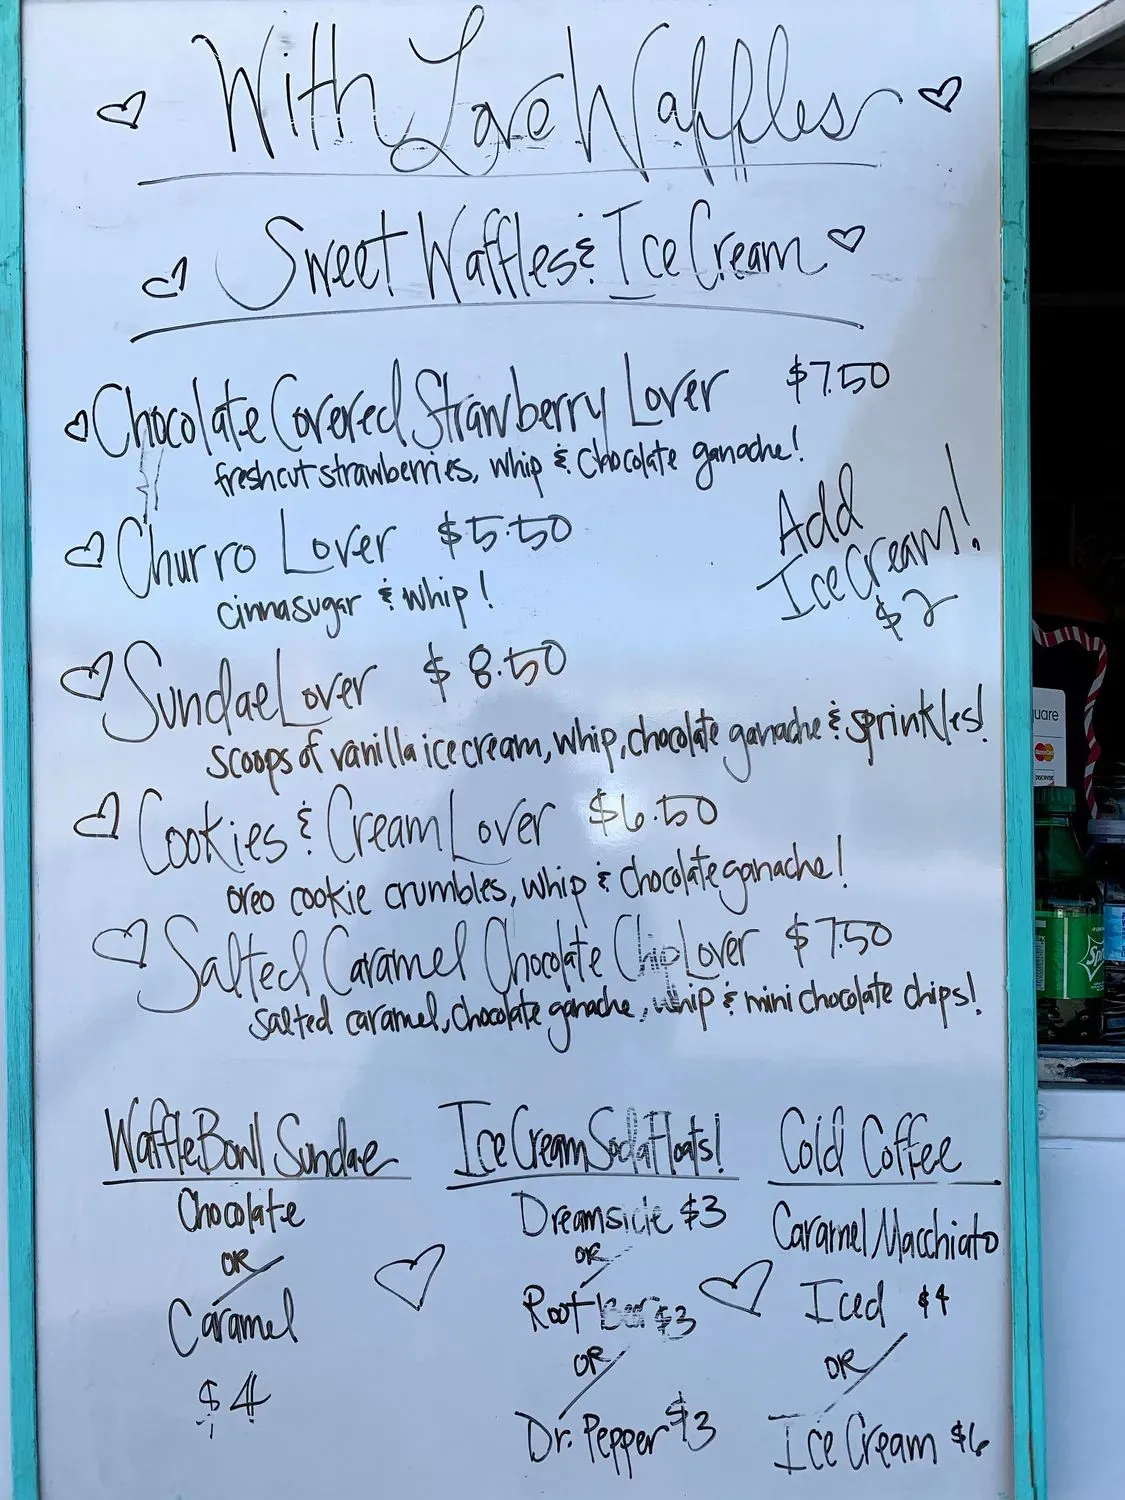 With Love Waffles
Sweet Waffles & Ice Cream
Chocolate Covered Strawberry Lover $7.50
fresh cut strawberries, whip & chocolate ganache!
Add
Ice Cream!
$2
Churro Lover $5.50
cinnasugar & whip!
Sundae Lover $8.50
scoops of vanilla ice cream, whip, chocolate ganache & sprinkles!
Cookies & Cream Lover $6.50
oreo cookie crumbles, whip & chocolate ganache!
Salted Caramel Chocolate Chip Lover $7.50
salted caramel, chocolate ganache, whip & mini chocolate chips!
Waffle Bowl Sundae
Chocolate
OR
Caramel
$4
Ice Cream Soda Floats!
Dreamsicle $3
OR
Root Beer $3
OR
Dr. Pepper $3
Cold Coffee
Caramel Macchiato
Iced $4
OR
Ice Cream $6
uare
DISCOVER